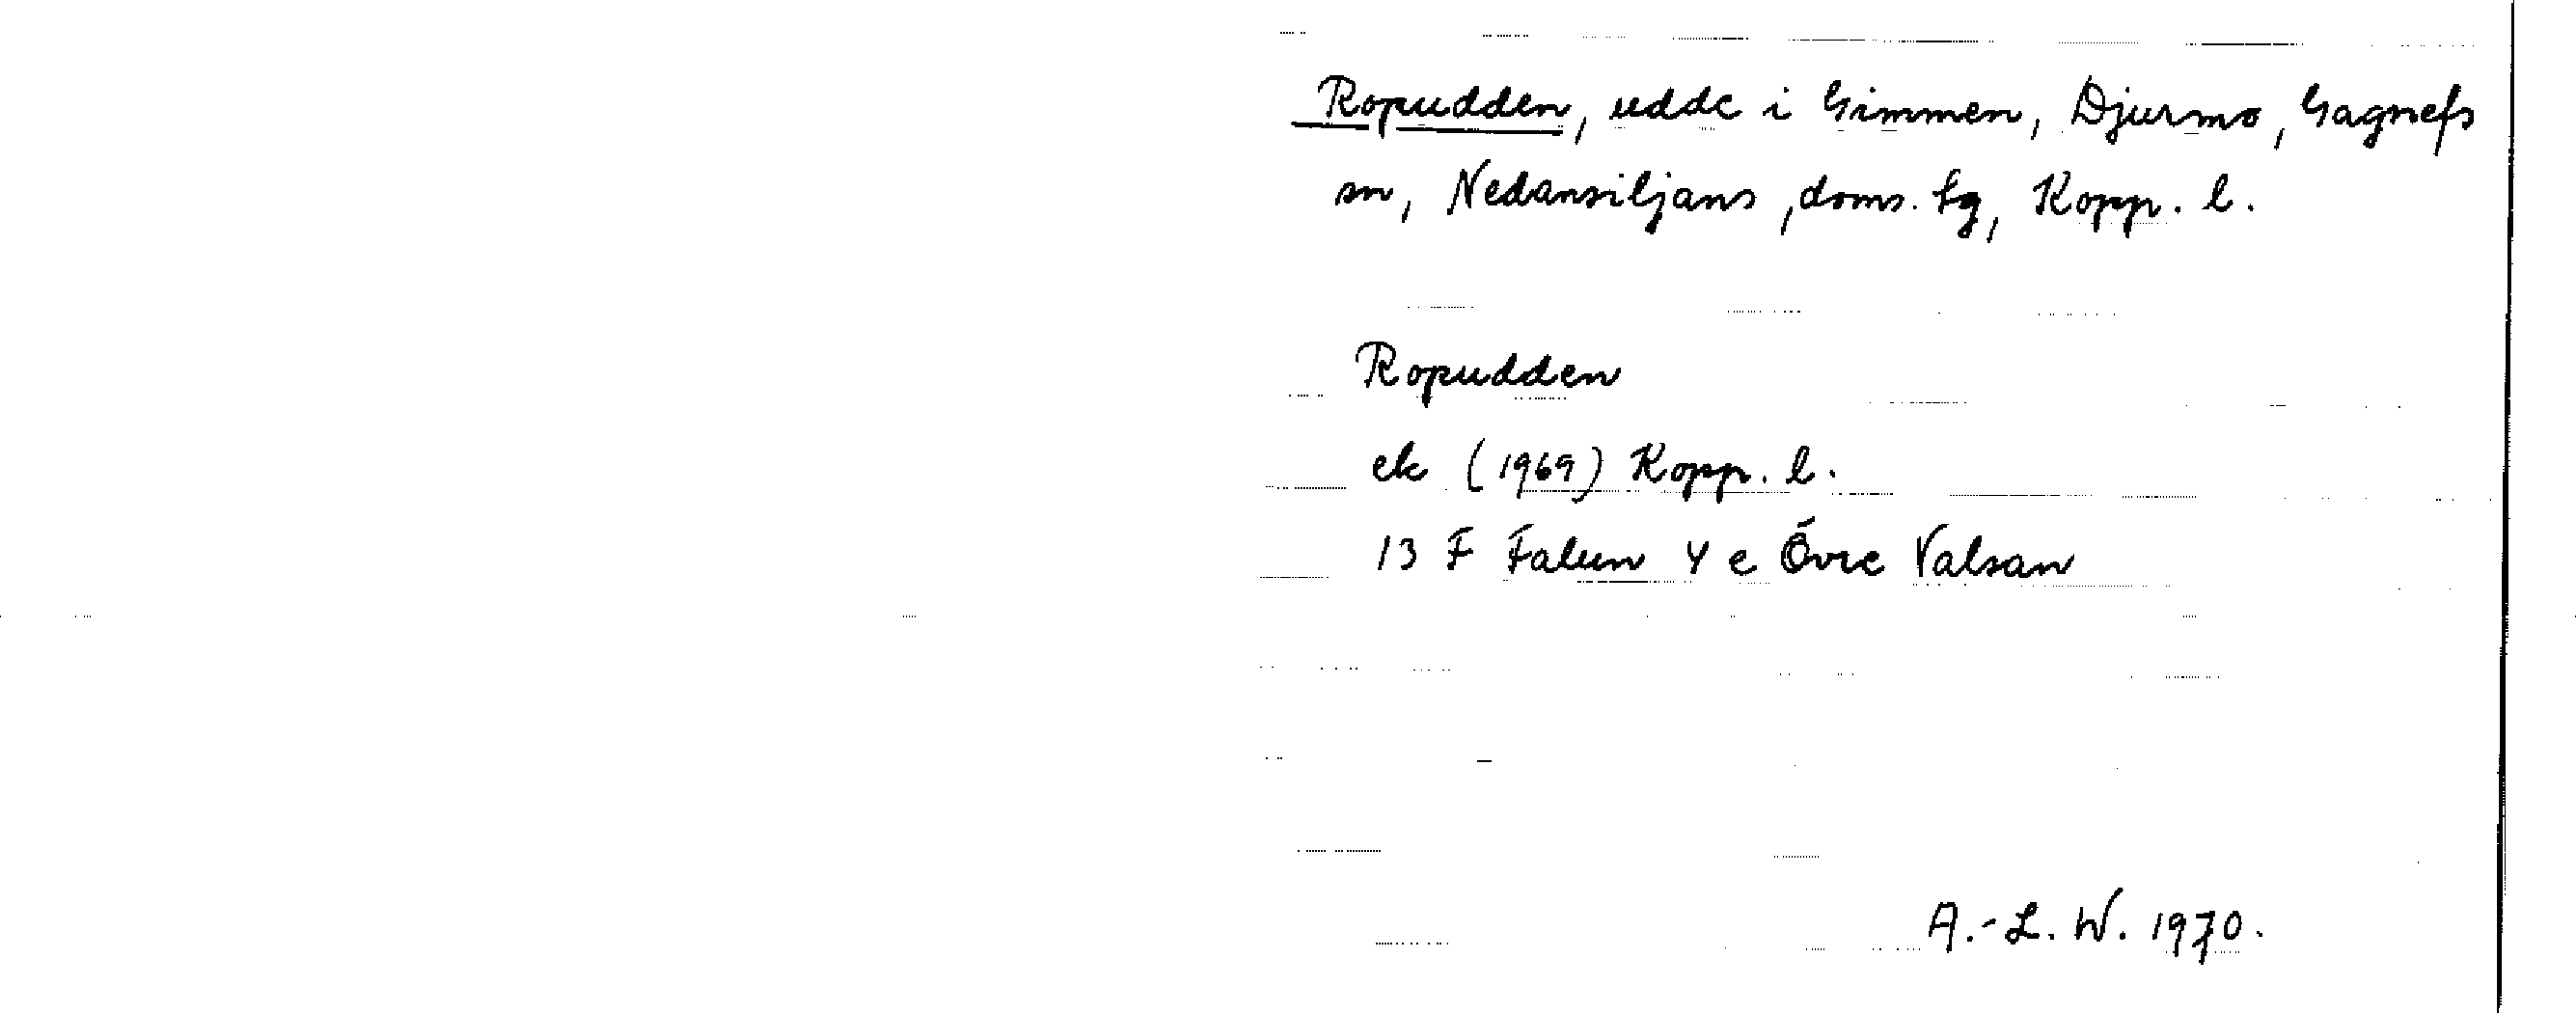 Ropudden, udde i Gimmen, Djurmo, Gagnefs
sn, Nedansiljans, doms. tg, Kopp. l.
Ropudden
ek (1969) Kopp. l.
13 F Falun 4 e Övre Valsan
A.-L. W. 1970.